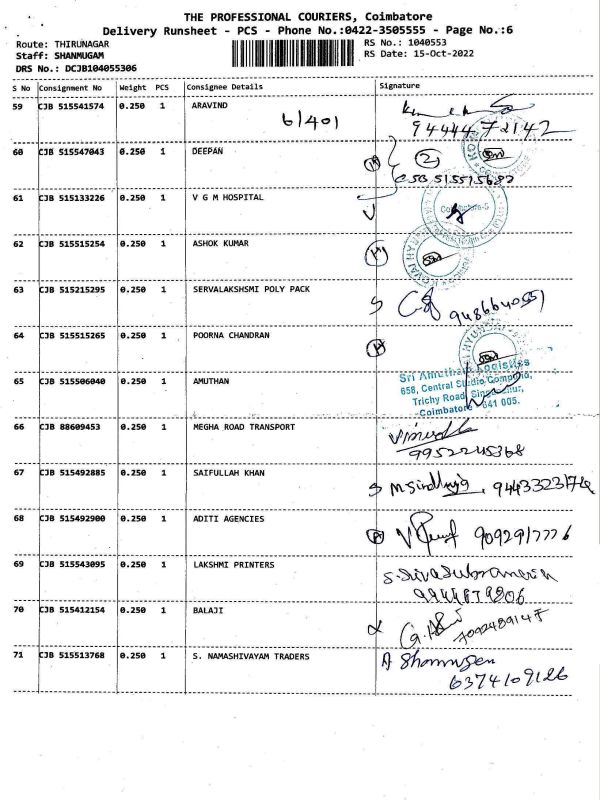 THE PROFESSIONAL COURIERS, Coimbatore
Delivery Runsheet - PCS - Phone No.:0422-3505555 - Page No.:6
Route: THIRUNAGAR
RS No.: 1040553
Staff: SHANMUGAM
RS Date: 15-Oct-2022
DRS No.: DCJB104055306
S No Consignment No Weight PCS Consignee Details Signature
59 CJB 515541574 0.250 1 ARAVIND
6/401
9444472142
60 CJB 515547043 0.250 1 DEEPAN
2
61 CJB 515133226 0.250 1 V G M HOSPITAL
62 CJB 515515254 0.250 1 ASHOK KUMAR
63 CJB 515215295 0.250 1 SERVALAKSHSMI POLY PACK
64 CJB 515515265 0.250 1 POORNA CHANDRAN
65 CJB 515506040 0.250 1 AMUTHAN
Sri Amutham Logistics
658, Central Studio Compound,
Trichy Road, Singanallur,
Coimbatore - 641 005.
66 CJB 88609453 0.250 1 MEGHA ROAD TRANSPORT
9952245368
67 CJB 515492885 0.250 1 SAIFULLAH KHAN
68 CJB 515492900 0.250 1 ADITI AGENCIES
69 CJB 515543095 0.250 1 LAKSHMI PRINTERS
S. Sivasubramanian
9944879206
70 CJB 515412154 0.250 1 BALAJI
71 CJB 515513768 0.250 1 S. NAMASHIVAYAM TRADERS
6374109126